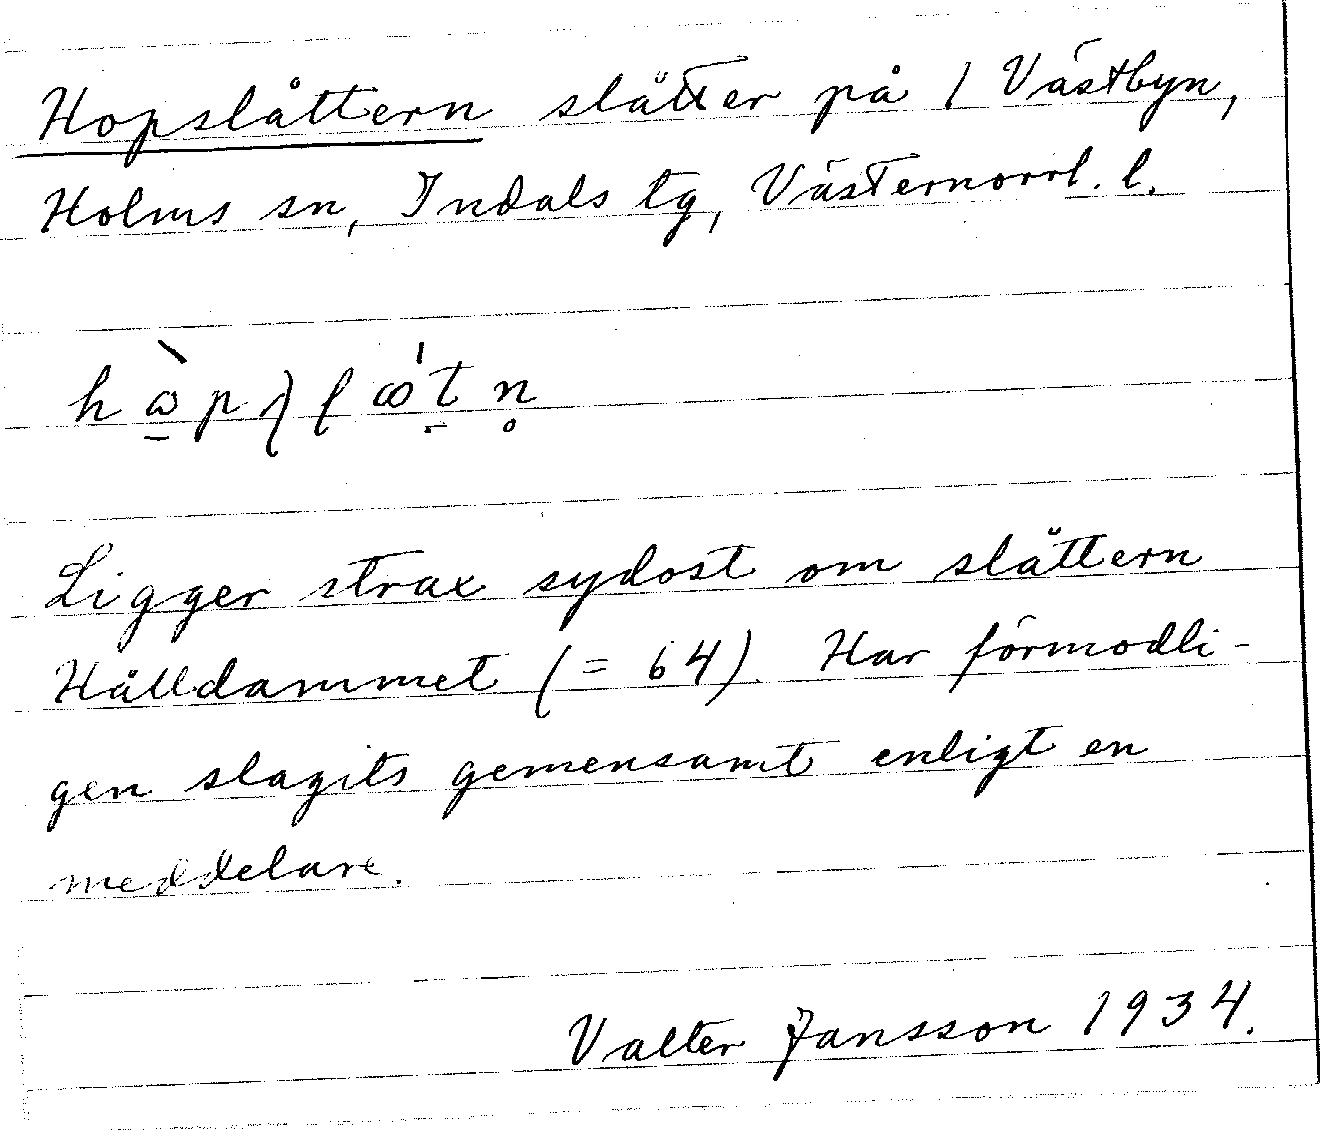 Hopslåttern slåtter på 1 Västbyn,
Holms sn, Indals tg, Västernorrl. l.
Ligger strax sydost om slåttern
Hålldammet (= 64). Har förmodli-
gen slagits gemensamt enligt en
meddelare.
Valter Jansson 1934.